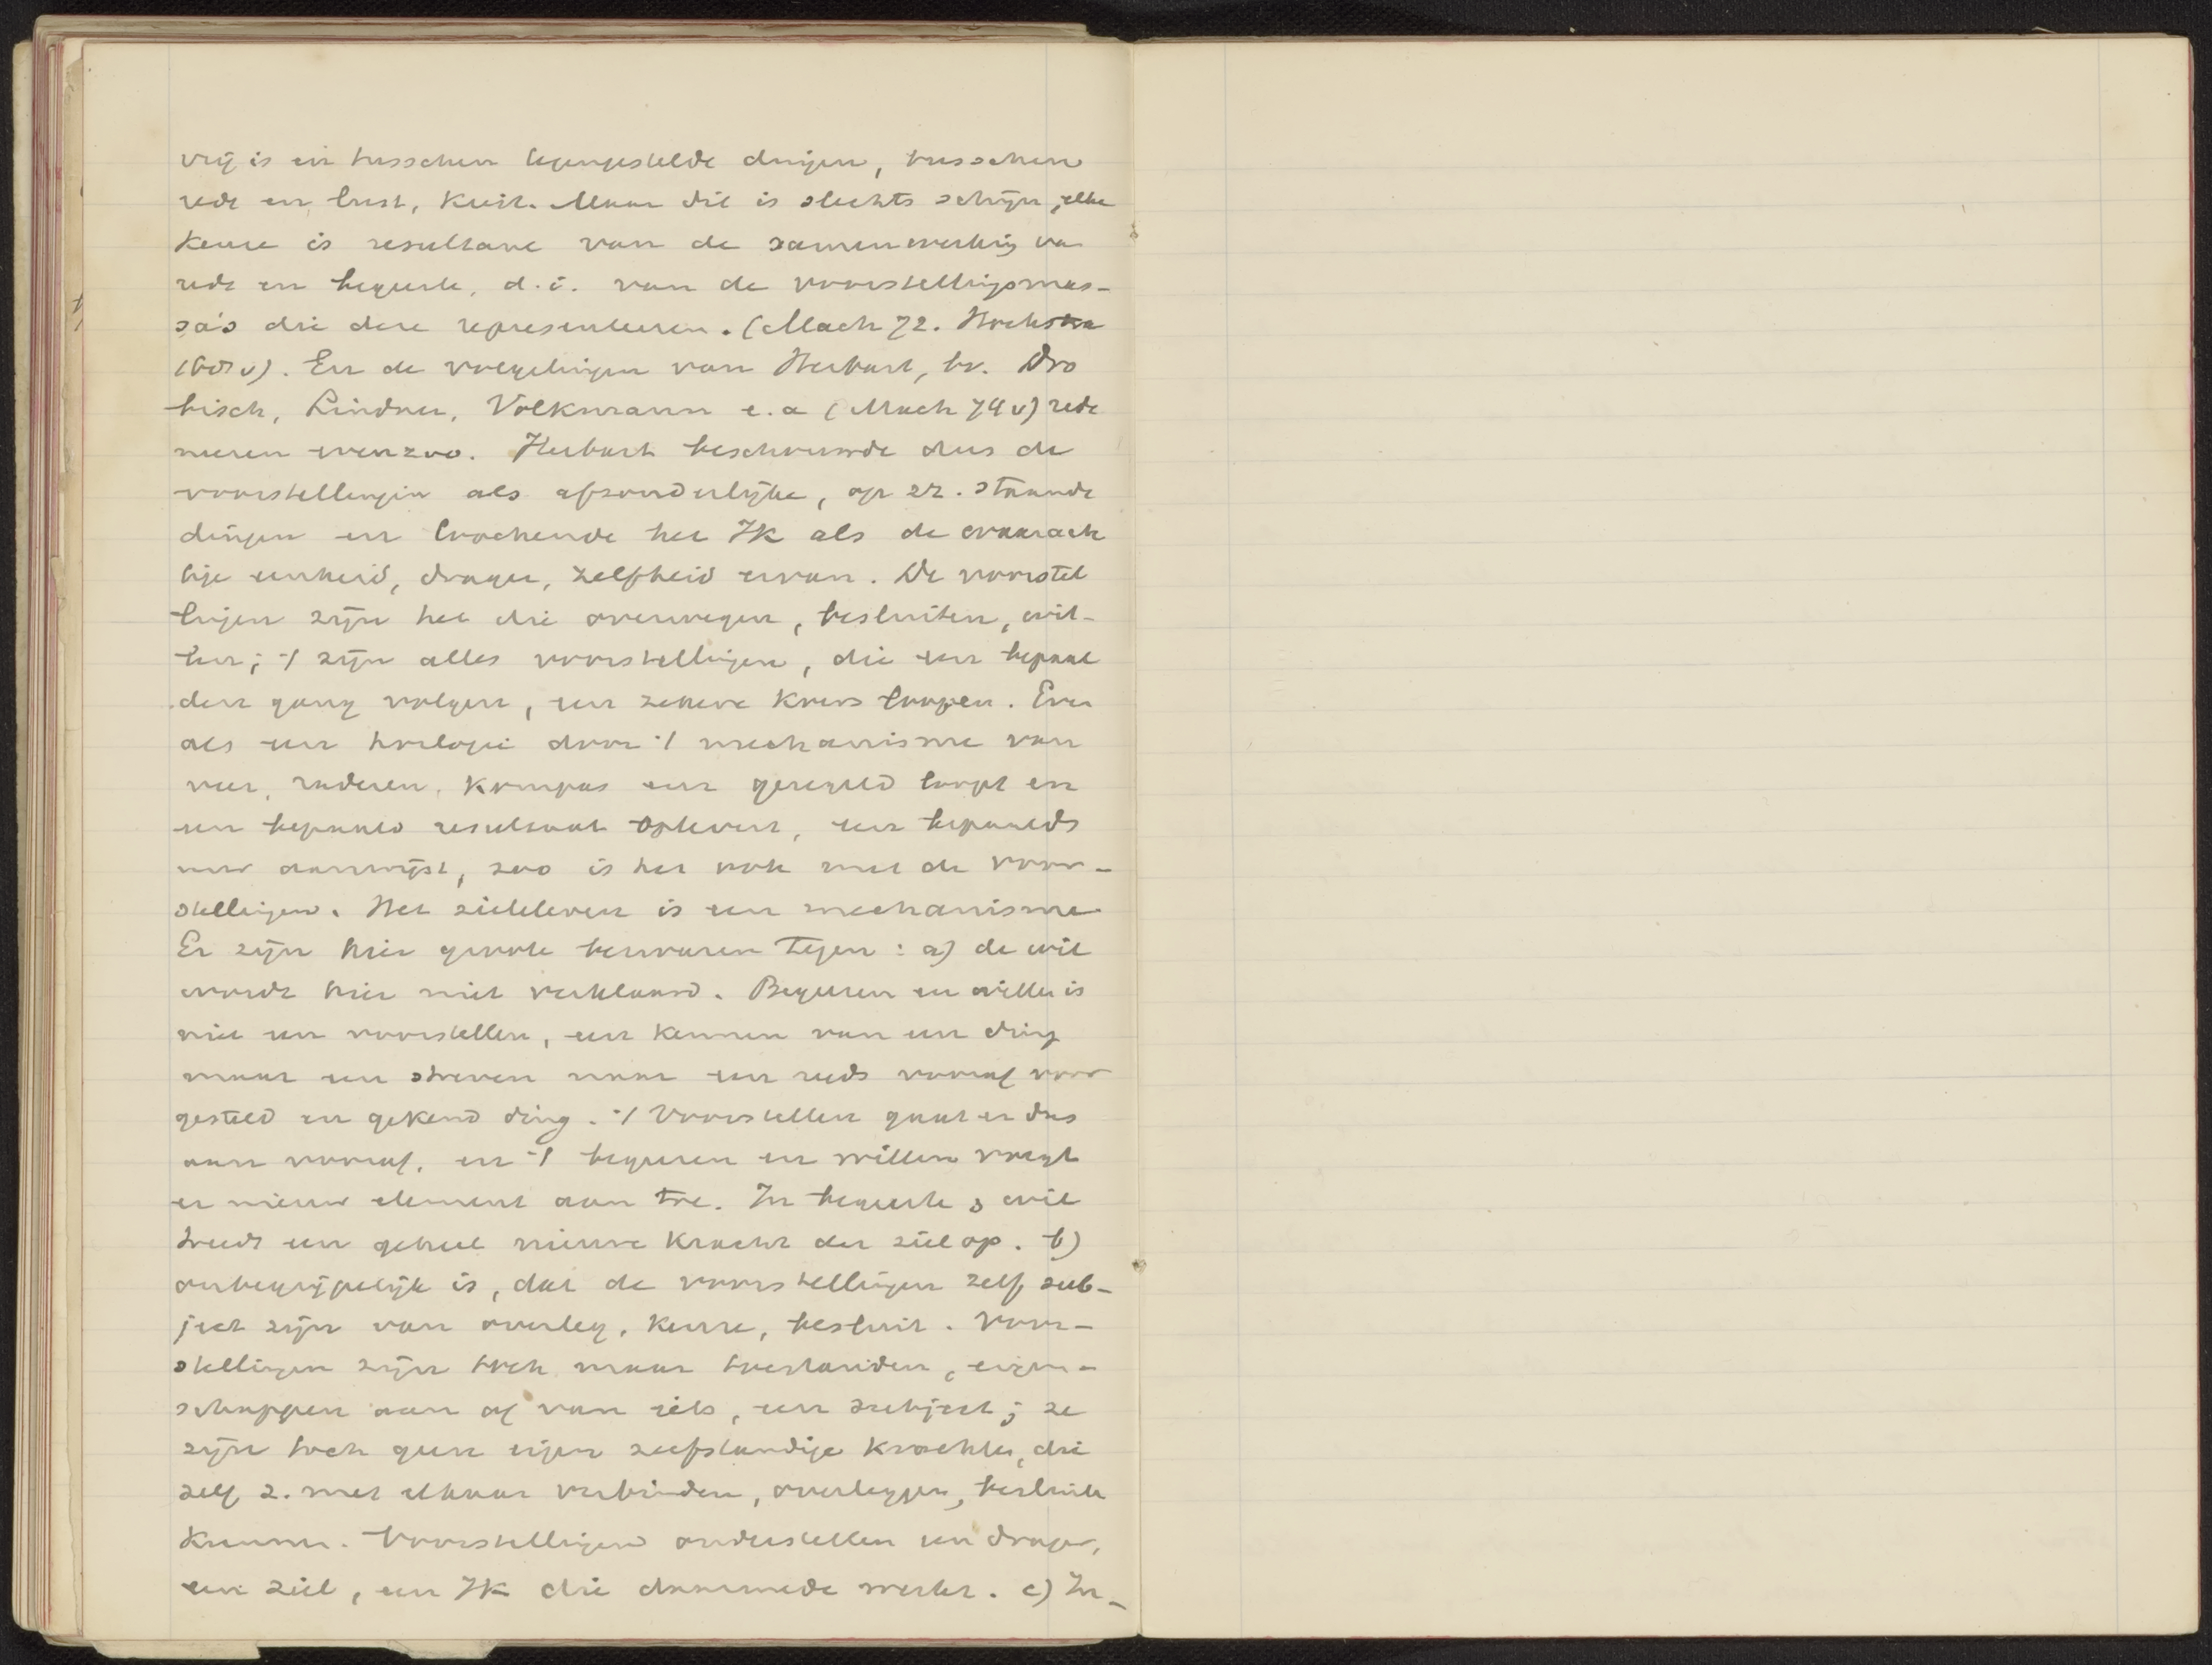 vrij is en tusschen tegengestelde dingen, tusschen
rede en lust, kiest. Maar dit is slechts schijn, elke
keuze is resultante van de samenwerking van
rede en begeerte, d.i. van de voorstellingsmas-
sa's die deze representeeren. (Mach 72.
v). En de volgelingen van Herbart, bv. Dro
bisch, Lindner, Volkmann e.a (Mach 74 v) rede
neeren evenzoo. Herbart beschouwde dus de
voorstellingen als afzonderlijke, op zz. staande
dingen en loochende het Ik als de waarach
tige eenheid, drager, zelfheid ervan. De voorstel
lingen zijn het die overwegen, besluiten, wil-
len; 't zijn alles voorstellingen, die een bepaal
den gang volgen, een zekere koers loopen. Even
als een horlogie door 't mechanisme van
veer, raderen, kompas een geregeld loopt en
een bepaald resultaat oplevert, een bepaalds
uur aanwijst, zoo is het ook met de voor-
stellingen. Het zieleleven is een mechanisme
Er zijn hier groote bezwaren tegen: a) de wil
wordt hier niet verklaard. Begeeren en willen is
niet een voorstellen, een kennen van een ding
maar een streven naar een reeds vooraf voor
gesteld en gekend ding. 't Voorstellen gaat er dus
aan vooraf, en 't begeeren en willen voegt
er nieuw element aan toe. In begeerte & wil
treedt een geheel nieuwe kracht der ziel op. b)
onbegrijpelijk is, dat de voorstellingen zelf sub-
ject zijn van overleg, keuze, besluit. Voor-
stellingen zijn toch maar toestanden, eigen-
schappen aan of van iets, een subject; ze
zijn toch geen eigen zelfstandige krachten, die
zelf z. met elkaar verbinden, overleggen, besluiten
kunnen. Voorstellingen onderstellen een drager,
een ziel, een Ik die daarmede werkt. c) In-